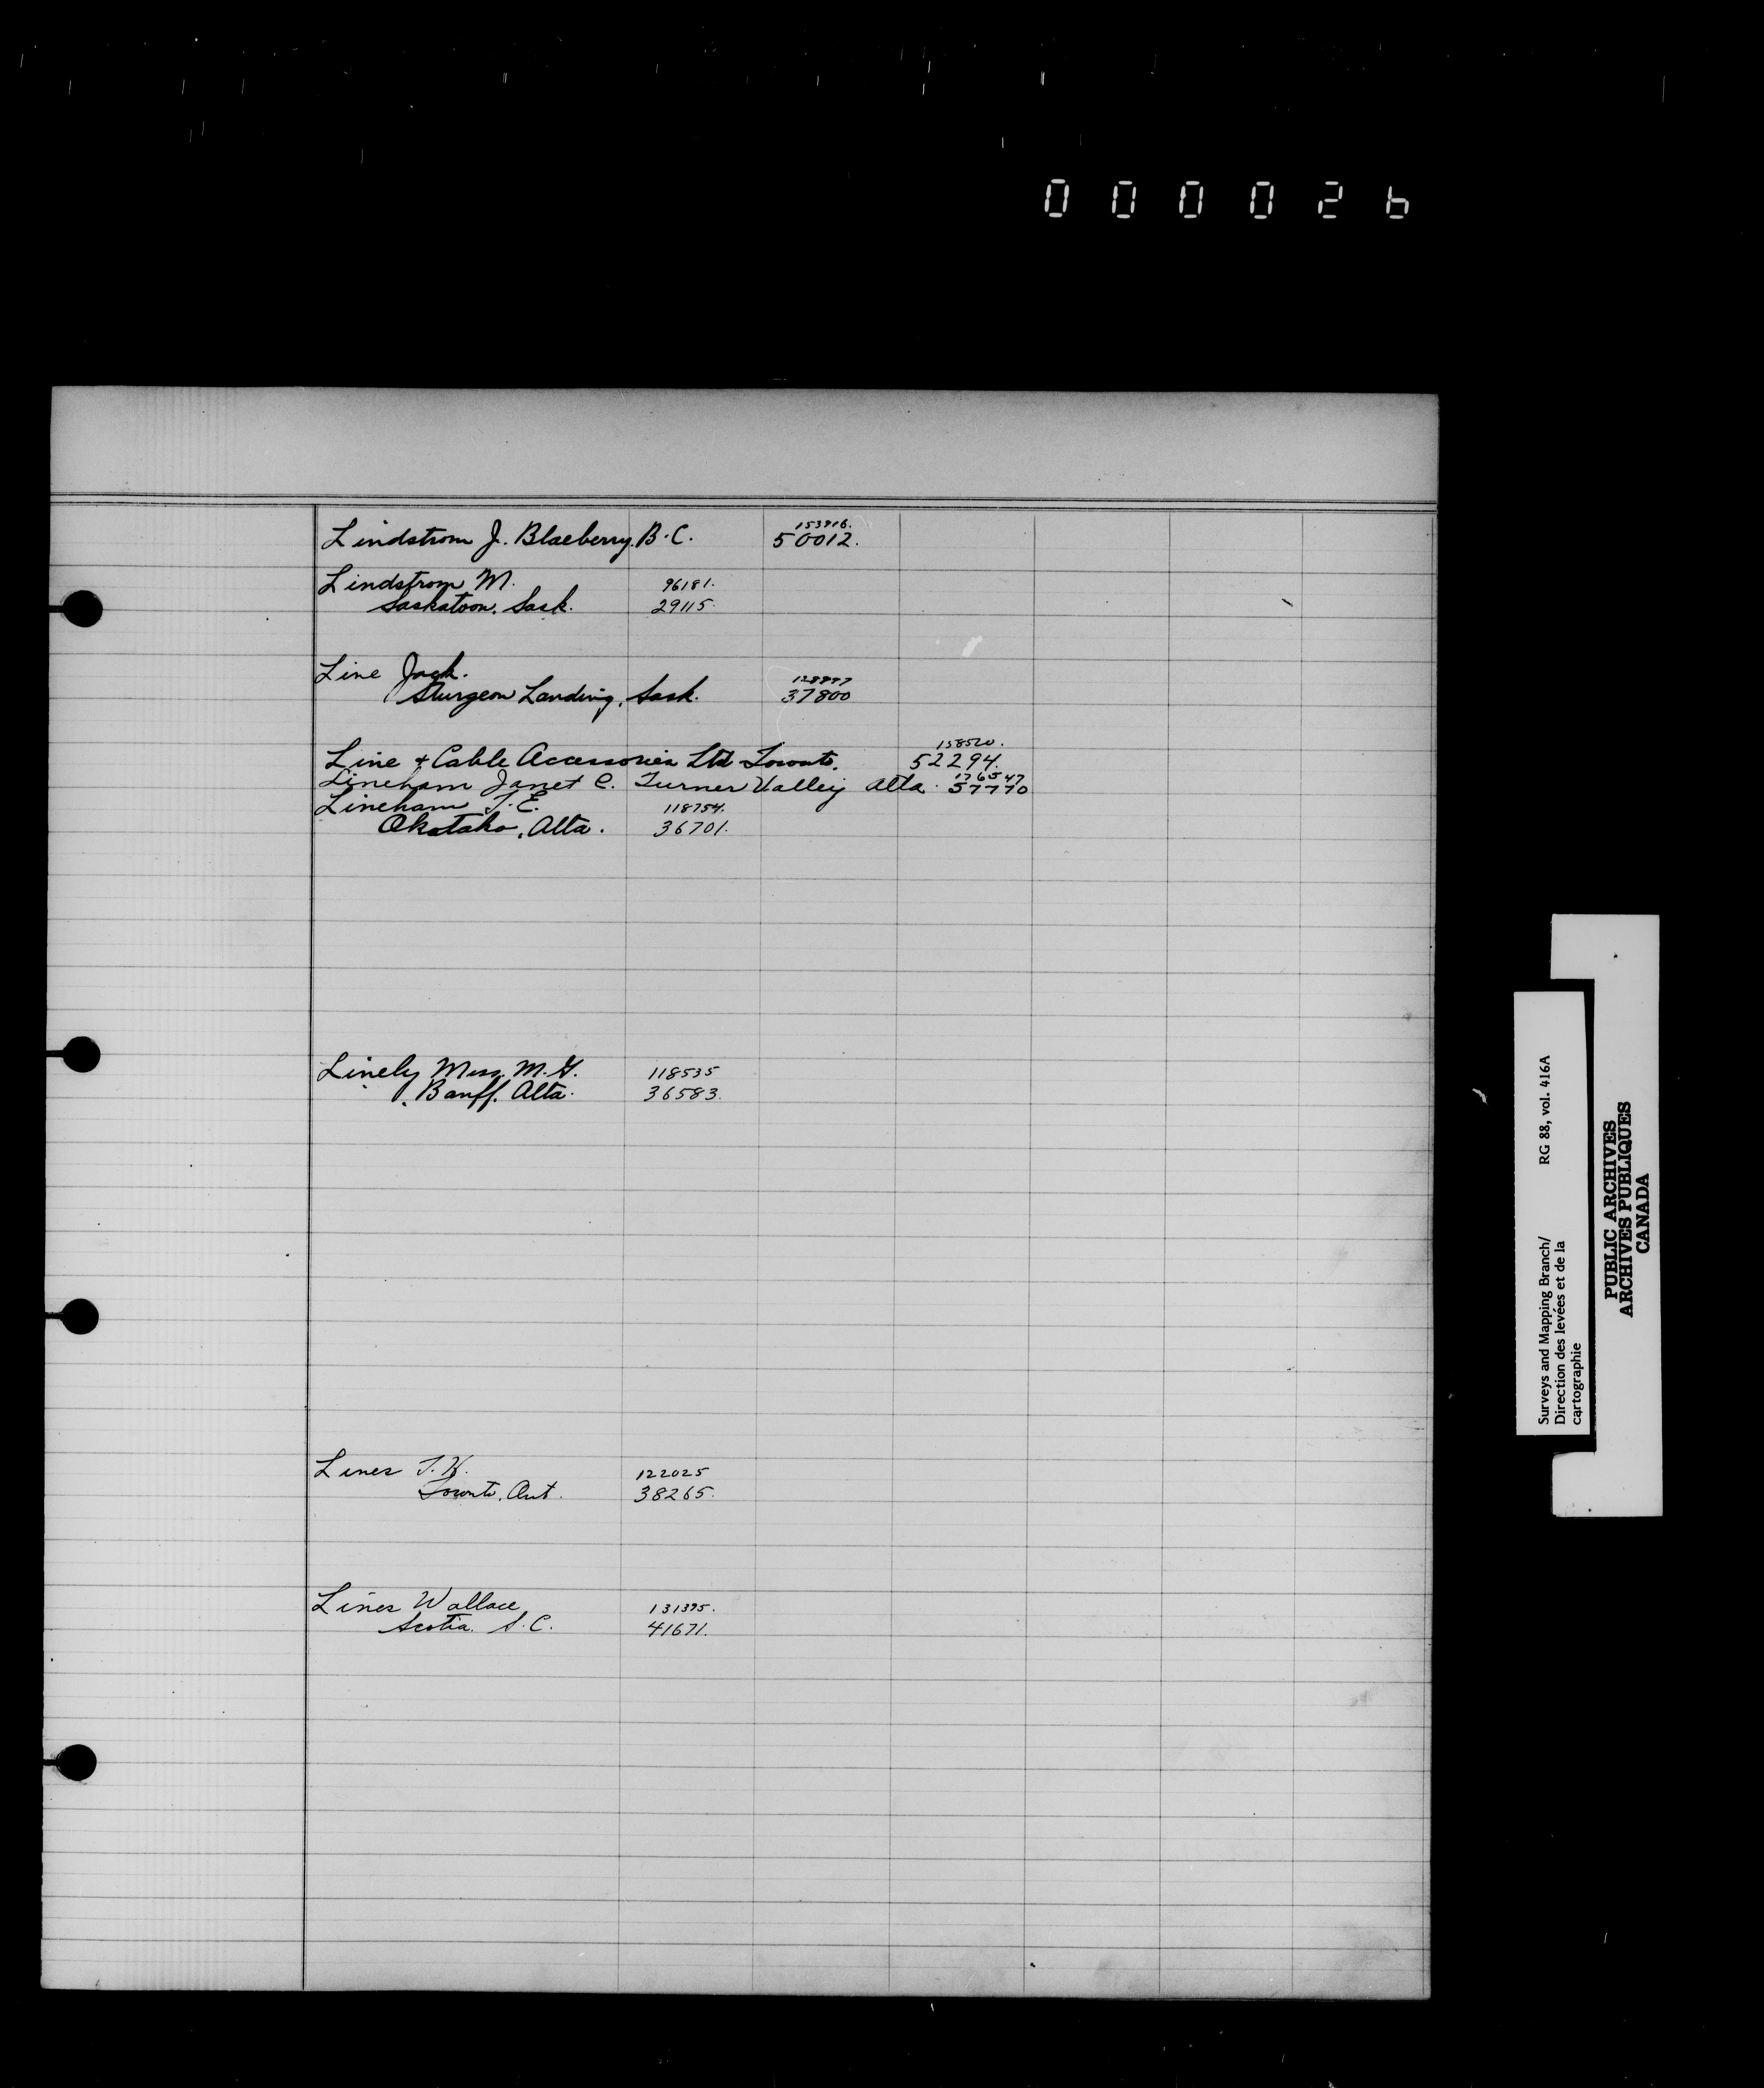 000026
Lindstrom J. Blaeberry. B.C. 153916. 50012.
Lindstrom M. 96181.
Saskatoon. Sask. 29115.
Line Jack.
Sturgeon Landing, Sask. 37800
Line & Cable Accessories Ltd Toronto. 158520. 52294.
Lineham Janet C. Turner Valley Alta. 176547 57770
Lineham T.E. 118754.
Okotoks, Alta. 36701.
Miss. M. G. 118535
Banff. Alta. 36583.
Lines T. K. 122025
Toronto, Ont. 38265.
Lines Wallace 131395.
Scotia. S.C. 41671.
Surveys and Mapping Branch/ RG 88, vol. 416A
Direction des levées et de la
cartographie
PUBLIC ARCHIVES
ARCHIVES PUBLIQUES
CANADA